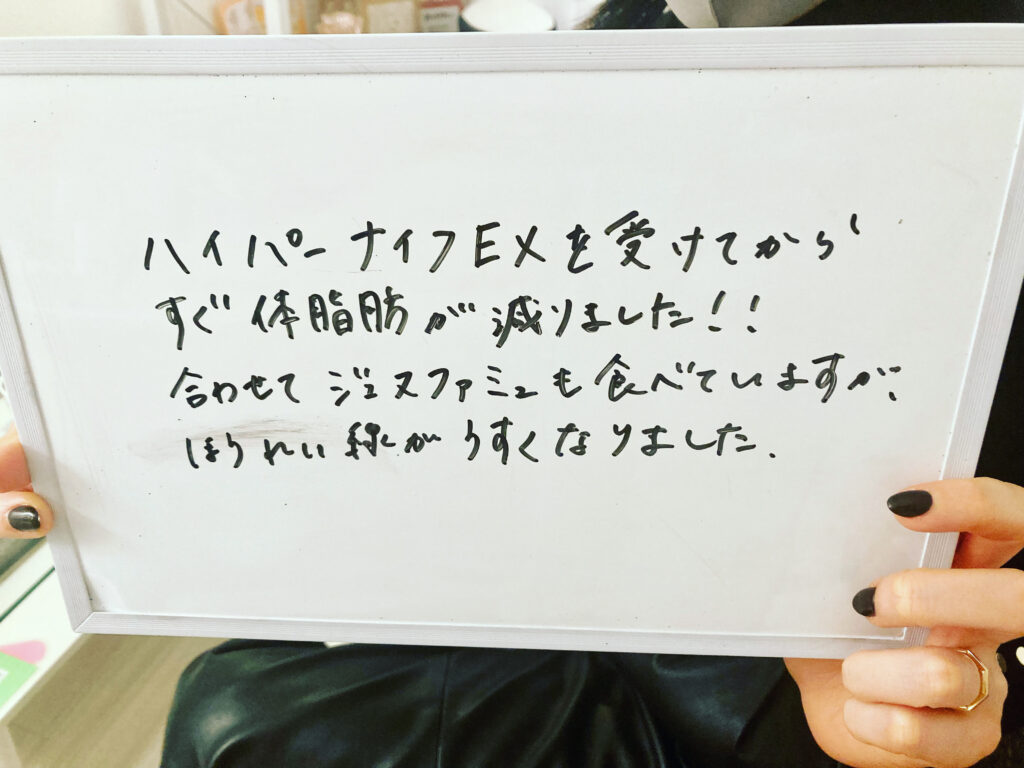 ハイパーナイフEXを受けてから
すぐ体脂肪が減りました!!
合わせてジェヌファミュも食べていますが、
ほうれい線がうすくなりました.